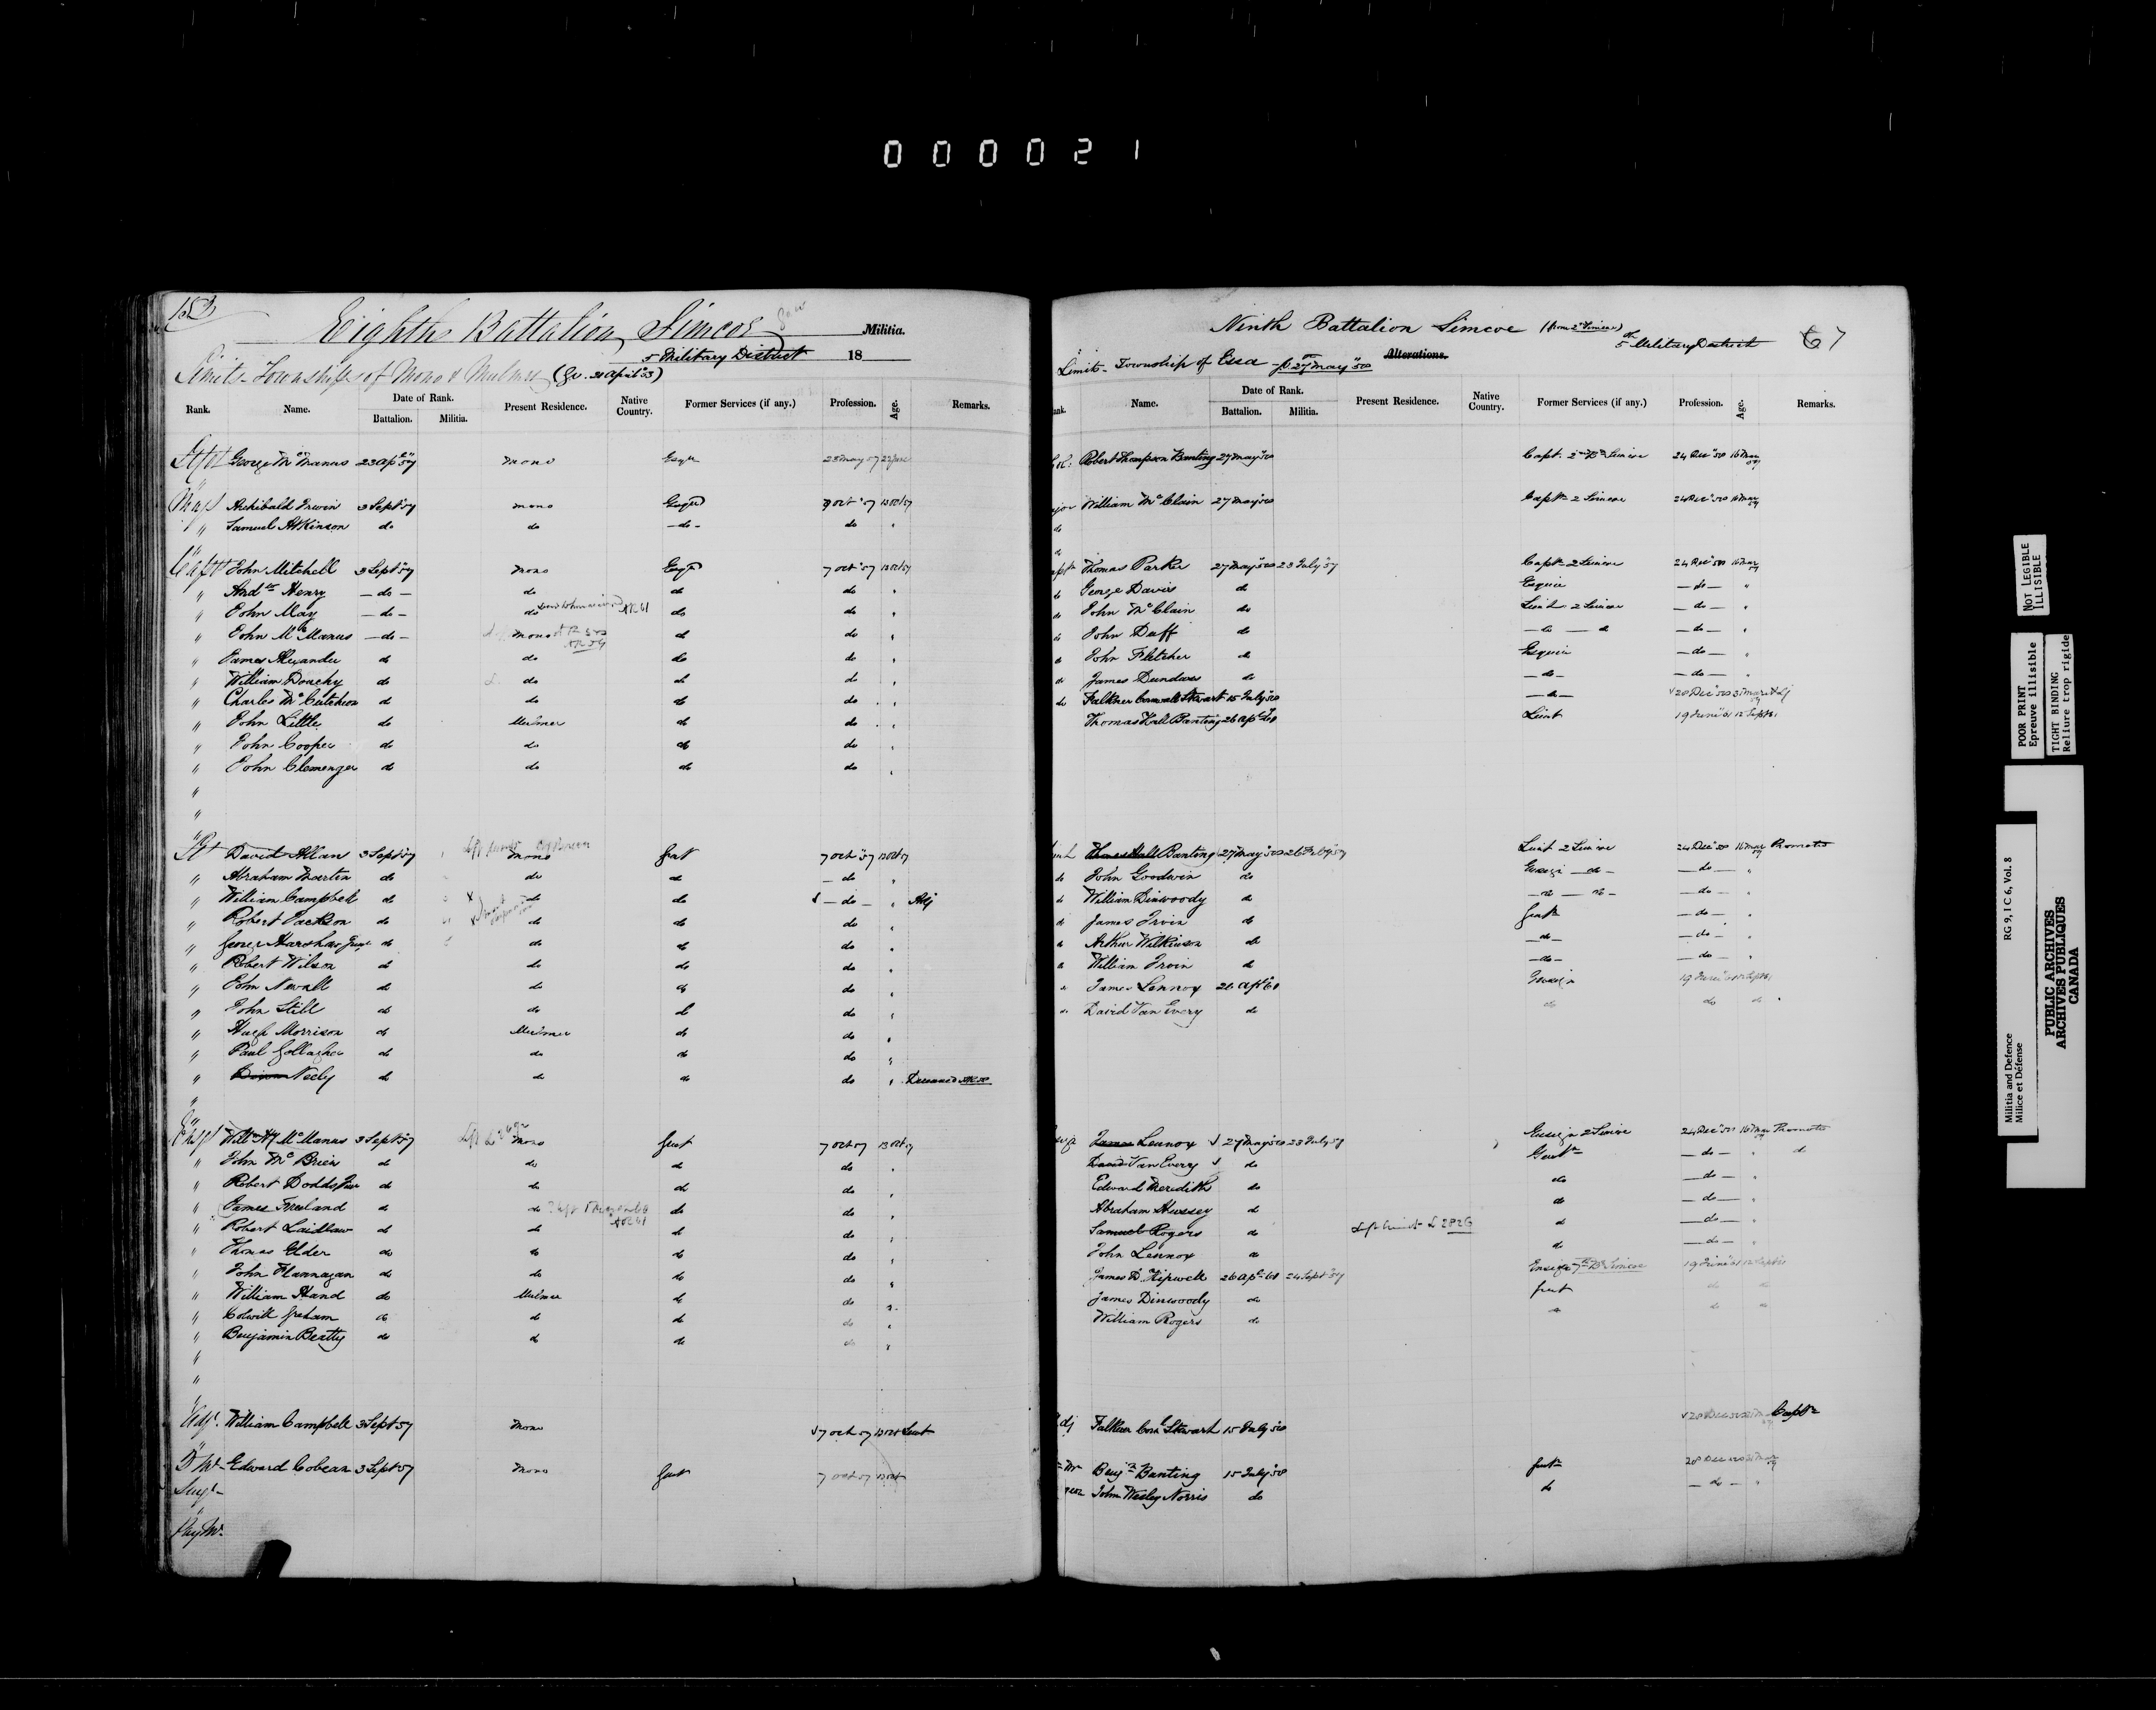 000021
153
Eighth Battalion Simcoe Militia.
5 Military District 18
Limits - Townships of Mono & Mulmer
Rank. Name. Date of Rank. Battalion. Militia. Present Residence. Native Country. Former Services (if any.) Profession. Age. Remarks.
George McManus 23 Apl 57 Mono Esqr 28 May 57
Archibald Irwin 3 Sept 57 Mono Esqr 7 Oct 57 13 Oct 57
" Samuel Atkinson do do -do- do "
Capt John Mitchell 3 Sept 57 Mono Esqr 7 Oct 57 13 Oct 57
" Henry -do- do do do "
" John May -do- do AR 61 do do "
" John McManus -do- Mono do do "
" James Alexander do do do do "
" William do do do do "
" Charles McCutcheon do do do do "
" John Little do Mulmer do do "
" John Cooper do do do do "
" John Clemenger do do do do "
"
"
Lt David Allan 3 Sept 57 Mono Gent 7 Oct 57 13 Oct 57
" Abraham Martin do do do do "
" William Campbell do do do -do- " Adj
" Robert Jackson do do do do "
" do do do do "
" Robert Wilson do do do do "
" John Newall do do do do "
" John Still do do do do "
" Hugh Morrison do Mulmer do do "
" Paul Gallagher do do do do "
" Neely do do do do "
"
Ensign McManus 3 Sept 57 Mono Gent 7 Oct 57 13 Oct 57
" John McBrien do do do do "
" Robert Dodds do do do do "
" James Freeland do do do do "
" Robert Laidlaw do do do do "
" Thomas Elder do do do do "
" John Flannagan do do do do "
" William Hand do Mulmer do do "
" Graham do do do do "
" Benjamin Beatty do do do do "
"
"
Adjt. William Campbell 3 Sept 57 Mono 7 Oct 57 13 Oct Lieut
Edward Cobean 3 Sept 57 Mono Gent 7 Oct 57 13 Oct
Surg.
Pay Mr.
Ninth Battalion Simcoe (from 2d Simcoe)
5th Military District
67
Limits - Township of Essa 27 May 58 Alterations.
Name. Date of Rank. Battalion. Militia. Present Residence. Native Country. Former Services (if any.) Profession. Age. Remarks.
Robert Thompson Banting 27 May 58 Capt. 2nd Bn Simcoe 24 Dec 58 16 Mar 59
William McClain 27 May 58 Capt 2 Simcoe 24 Dec 58 16 Mar 59
do
Thomas Parker 27 May 58 23 July 57 Capt 2 Simcoe 24 Dec 58 16 Mar
do George Davis do Esquire -do- "
do John McClain do Lieut. 2 Simcoe -do- "
do John Duff do -do- do -do- "
do John Fletcher do Esquire -do- "
do James Dundas do -do- -do- "
do Falkner Cornwall Stewart 15 July 58 -do- 28 Dec 58
Thomas Hall Banting 26 Apl 61 Lieut 19 June 61
Thomas Hall Banting 27 May 58 Lieut 2 Simcoe 24 Dec 58 16 Mar 59 Promoted
do John Goodwin do Ensign -do- -do- "
do William Dinwoody do -do- -do- -do- "
do James Irvin do Gent -do- "
do Arthur Wilkinson do -do- -do- "
do William Irvin do -do- -do- "
do James Lennox 26 Apl 61 Ensign 19 June 61
do David Van Every do do do do
James Lennox 27 May 58 23 July 57 Ensign 2 Simcoe 24 Dec 58 16 Mar 59 Promoted
David Van Every do Gent -do- " do
Edward Meredith do do -do- "
Abraham Hussey do do -do- "
Samuel Rogers do do -do- "
John Lennox do do -do- "
26 Apl 61 24 Sept 57 Ensign Simcoe 19 June 61
James Dinwoody do Gent do do
William Rogers do do do do
Falkner Stewart 15 July 58 28 Dec 58 Capt
Benj Banting 15 July 58 Gent 28 Dec 58
John Wesley Norris do do -do- "
NOT LEGIBLE
ILLISIBLE
POOR PRINT
Epreuve illisible
TIGHT BINDING
Reliure trop rigide
Militia and Defence
Milice et Défense
RG 9, I C 6, Vol. 8
PUBLIC ARCHIVES
ARCHIVES PUBLIQUES
CANADA